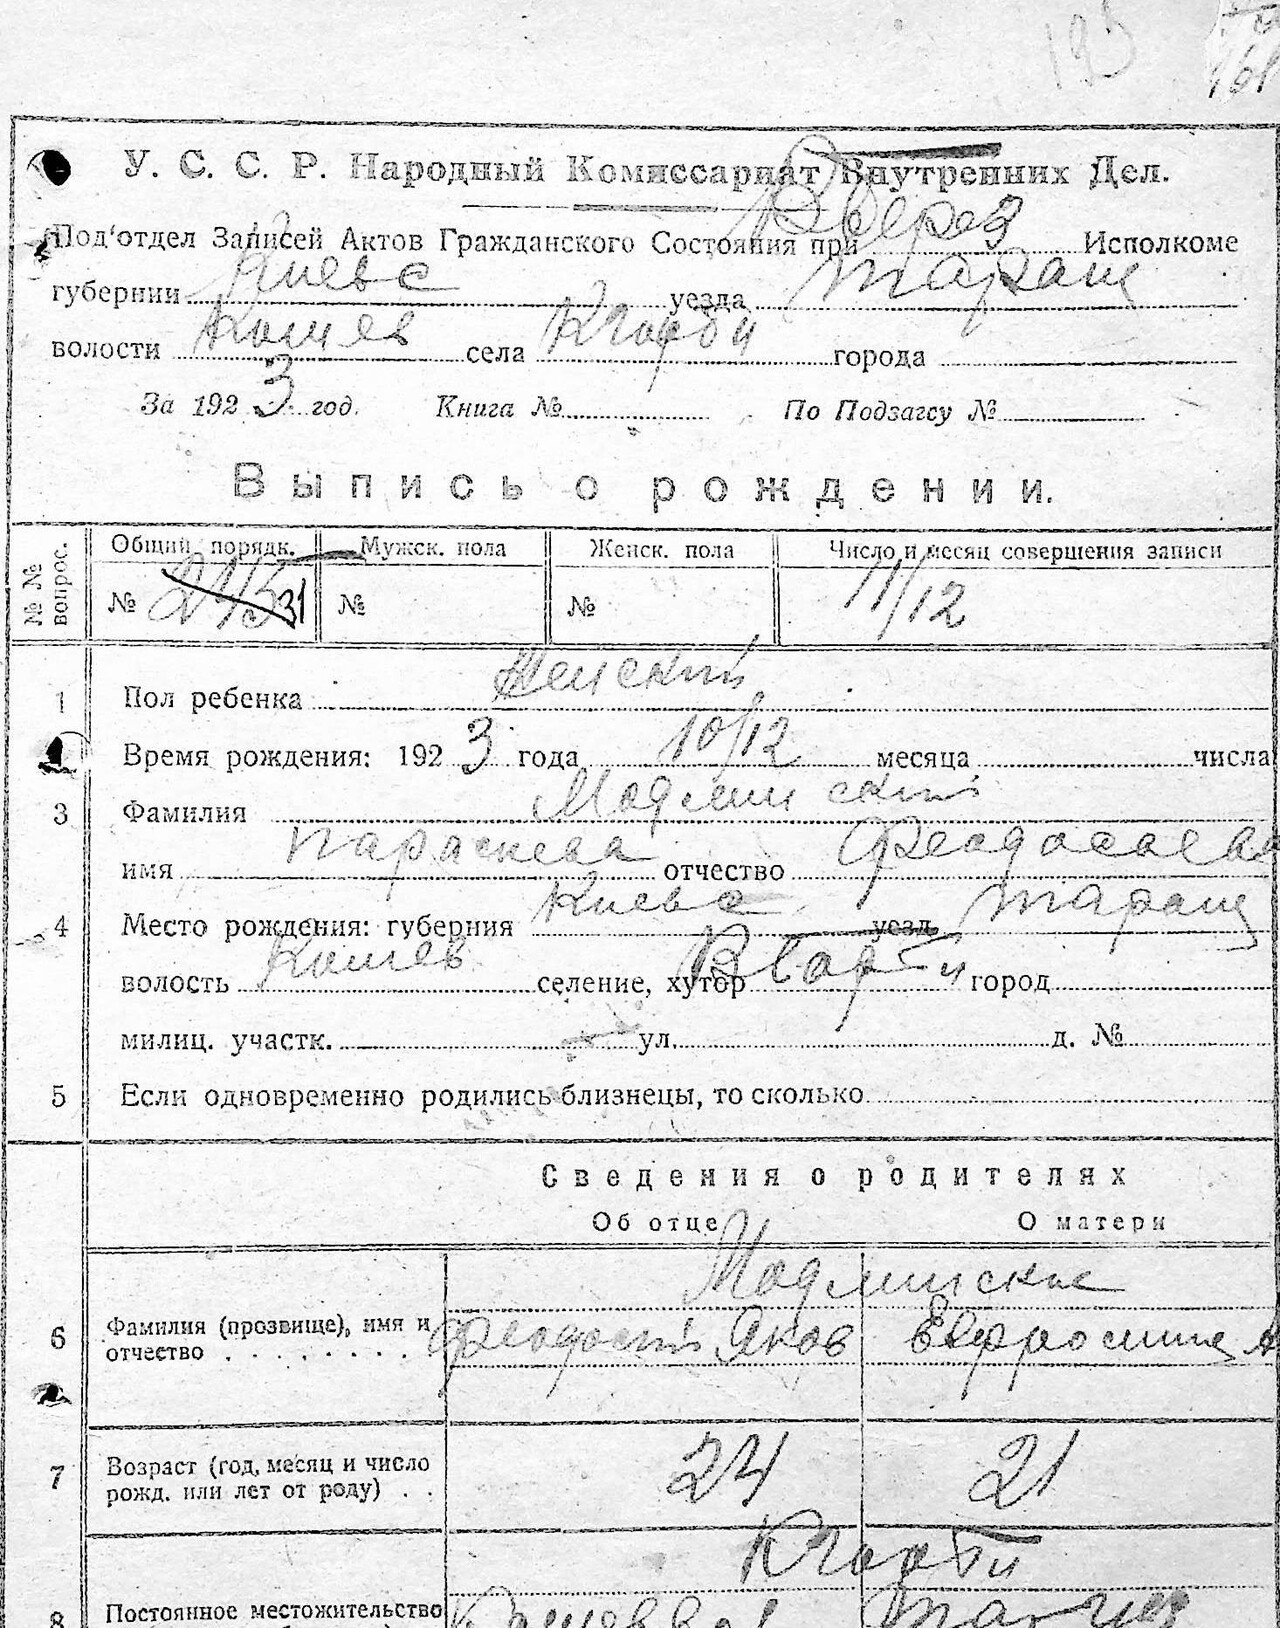 195
161
У. С. С. Р. Народный Комиссариат Внутренних Дел.
Под'отдел Записей Актов Гражданского Состояния при Исполкоме
губернии Киевс уезда Таращ
волости Кошев села города
За 1923 год. Книга № По Подзагсу №
Выпись о рождении.
№№ вопрос. Общий порядк. Мужск. пола Женск. пола Число и месяц совершения записи
№ 245 31 № № 11/12
1 Пол ребенка Женский
Время рождения: 1923 года 10/12 месяца числа
3 Фамилия
имя Параскева отчество Феодосиева
4 Место рождения: губерния Киевс уезд Таращ
волость Кошев селение, хутор город
милиц. участк. ул. д. №
5 Если одновременно родились близнецы, то сколько
Сведения о родителях
Об отце О матери
6 Фамилия (прозвище), имя и отчество Феодосий Яков Ефросиния А
7 Возраст (год, месяц и число рожд. или лет от роду) 24 21
8 Постоянное местожительство